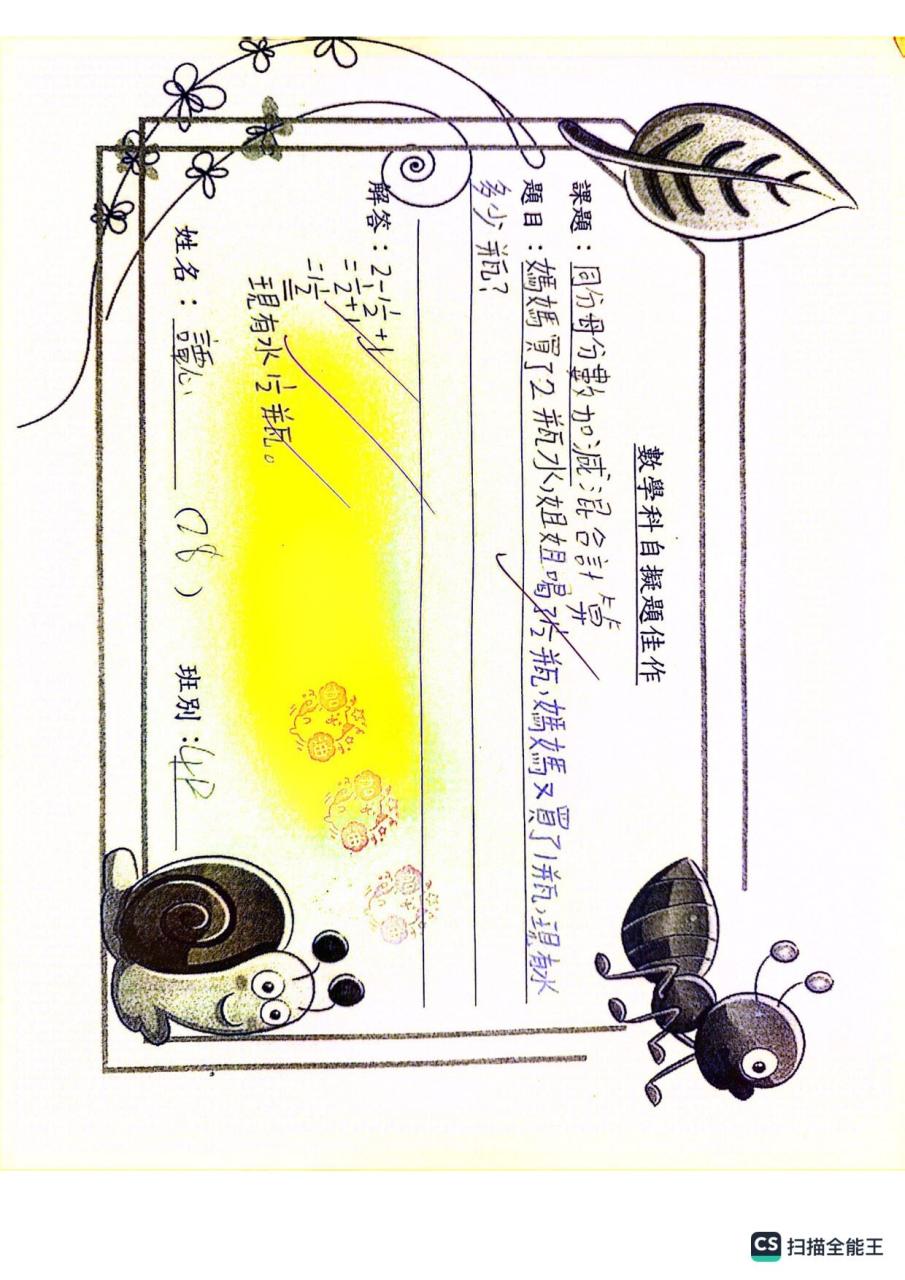 數學科自擬題佳作
課題：同分母分數加減混合計算
題目：媽媽買了2瓶水，姐姐喝了1½瓶，媽媽又買了1瓶，現有水
多少瓶？
解答：2-1½+1
=½+1
=1½
現有水1½瓶。
姓名：
(28) 班別：4P
CS 扫描全能王